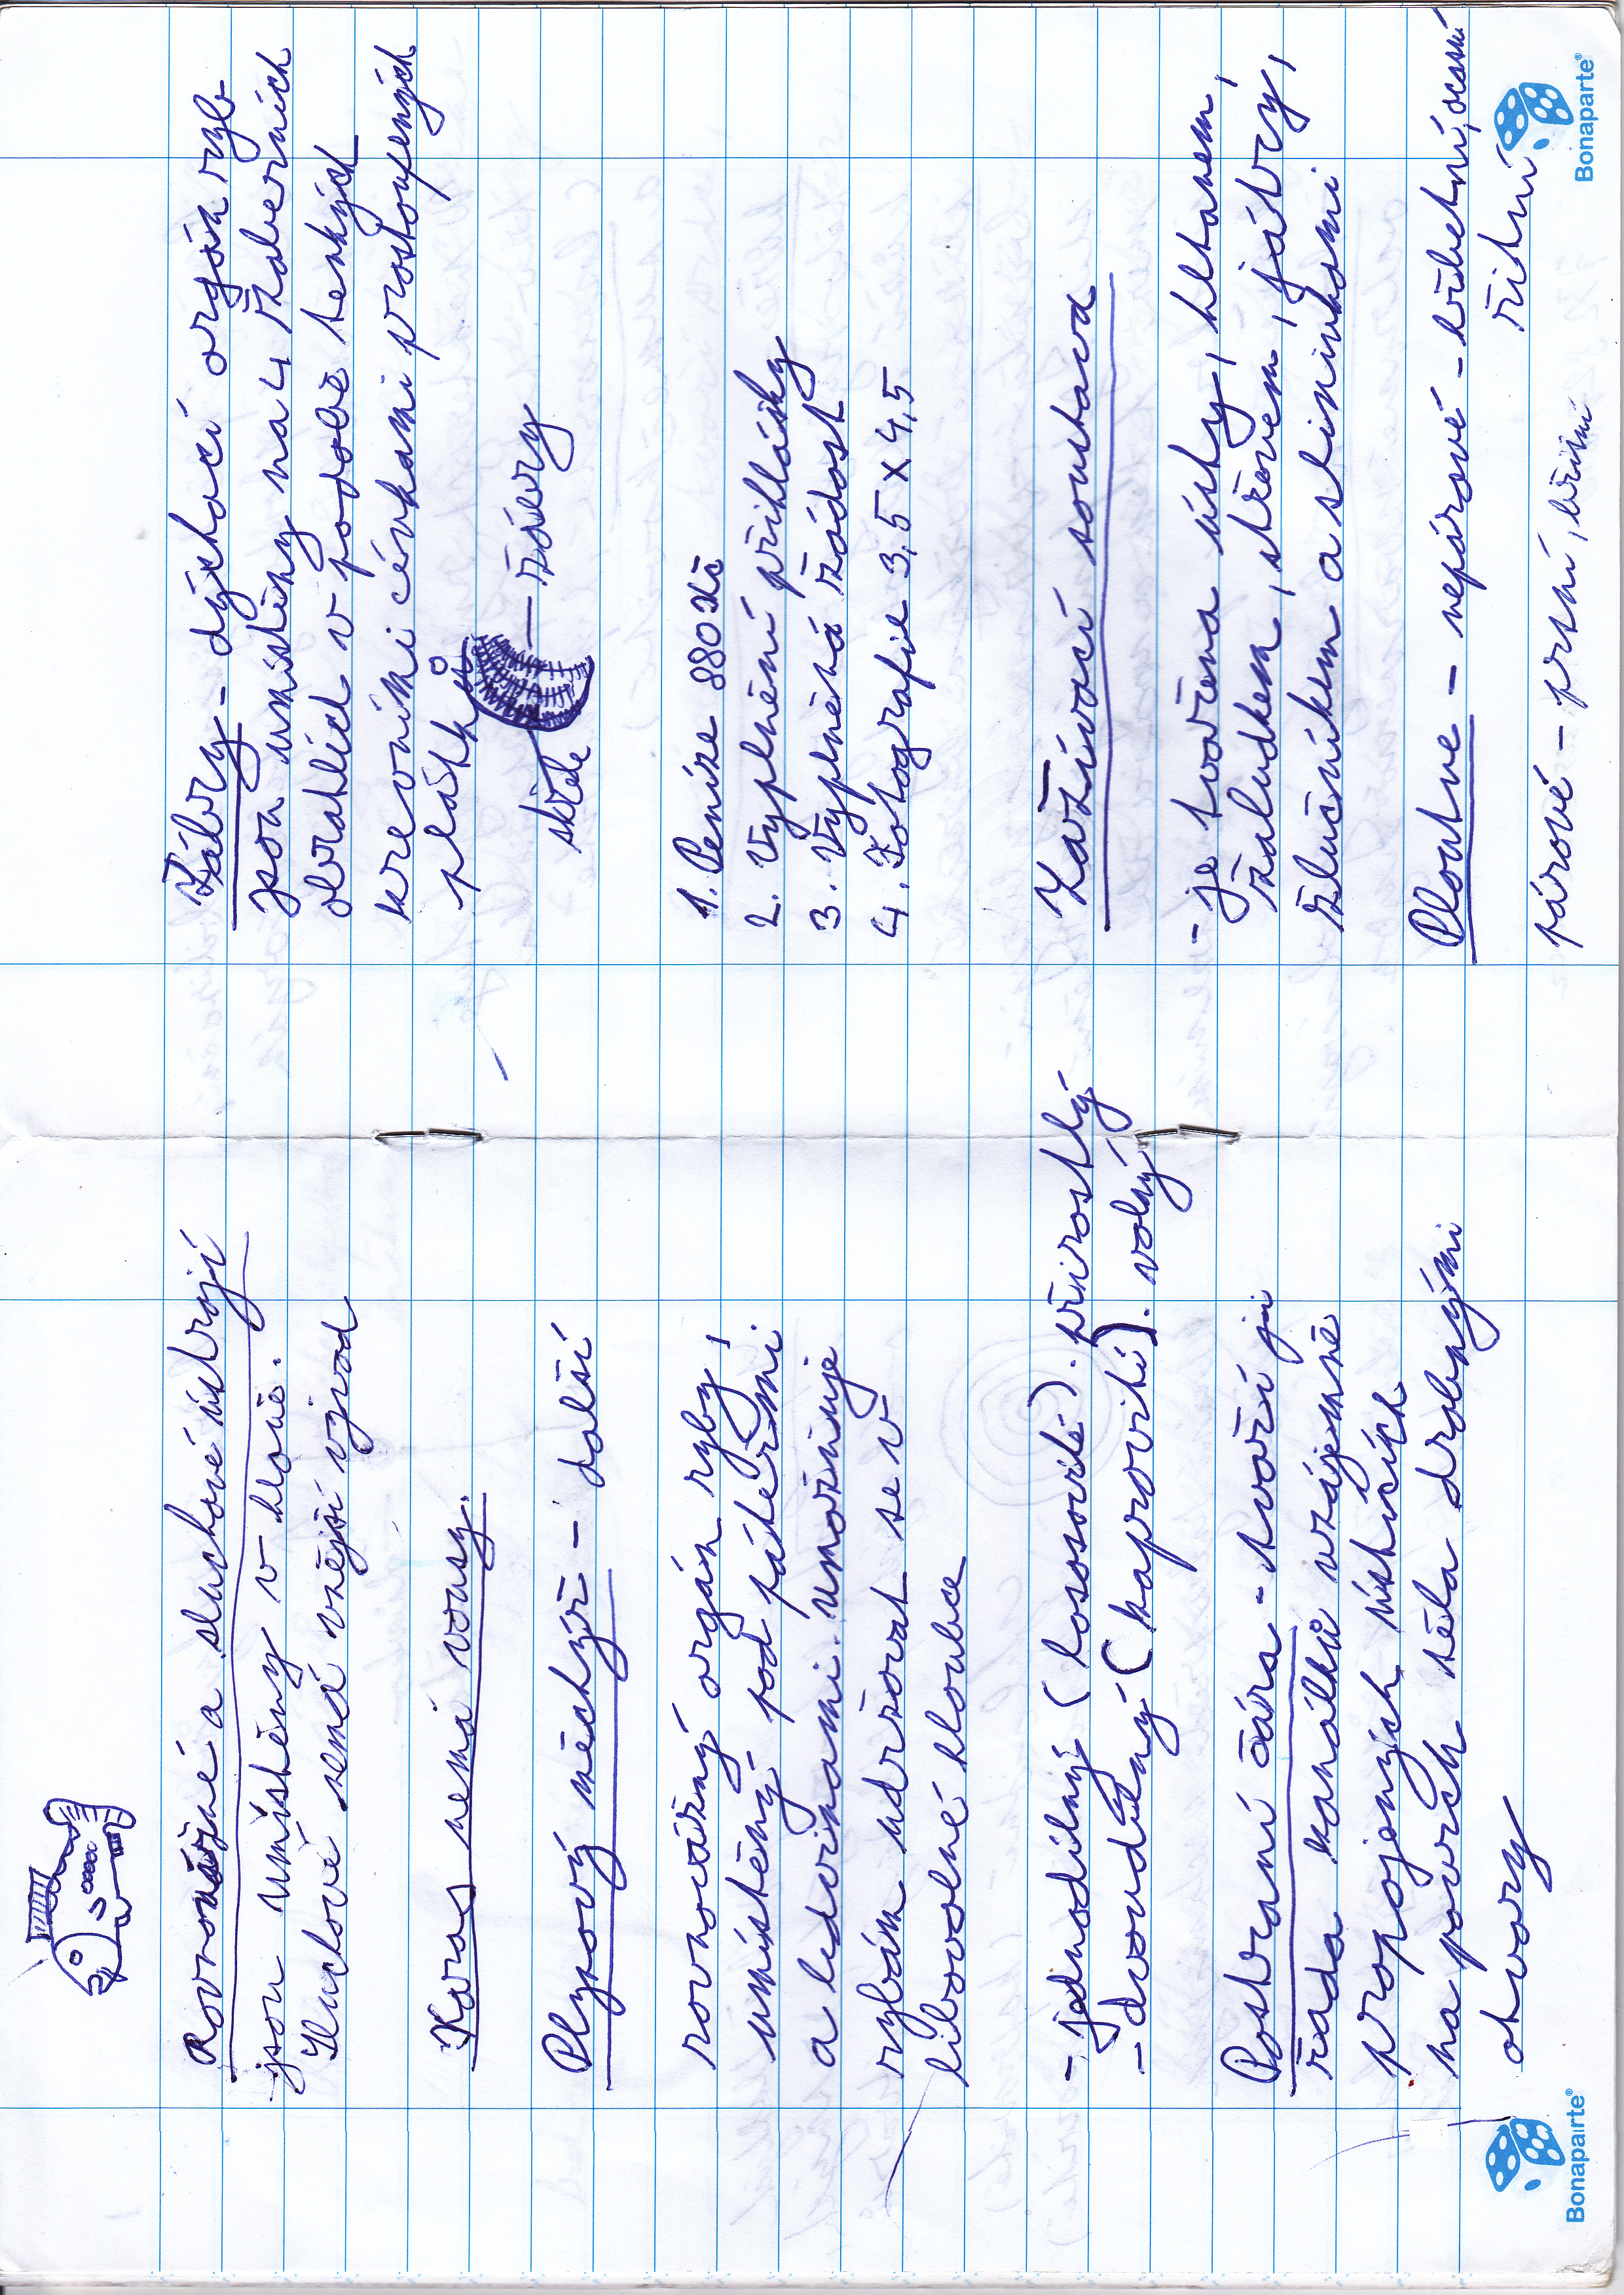 Rovnovážné a sluchové ústrojí
jsou umístěny v hlavě.
Sluchové nemá vnější vývod
Karas nemá vousy.
Plynový měchýř - další
rovnovážný orgán ryby,
umístěný pod páteřními
a ledvinami. umožňuje
rybám udržovat se v
libovolné hloubce
- jednodílný (lososovité). přirostlý
- dvoudílný (kaprovití). volný
Postraní čára - tvoří ji
řada kanálků vzájemně
propojených ústících
na povrch těla drobnými
otvory
Bonaparte®
Žábry - dýchací orgán ryb
jsou umístěny na 4 žaberních
obratlích v podobě tenkých
krevními cévkami prostoupených
plátků
skřele
žábry
1. Peníze 880 Kč
2. Vyplnění přihlášky
3. Vyplněná žádost
4. Fotografie 3,5 x 4,5
Zažívací soustava
- je tvořena ústy, hltanem,
žaludkem, střevem, játry,
žlučníkem a slinivkami
Ploutve - nepárové - hřbetní, ocasní
řitní
párové - prsní, břišní
Bonaparte®